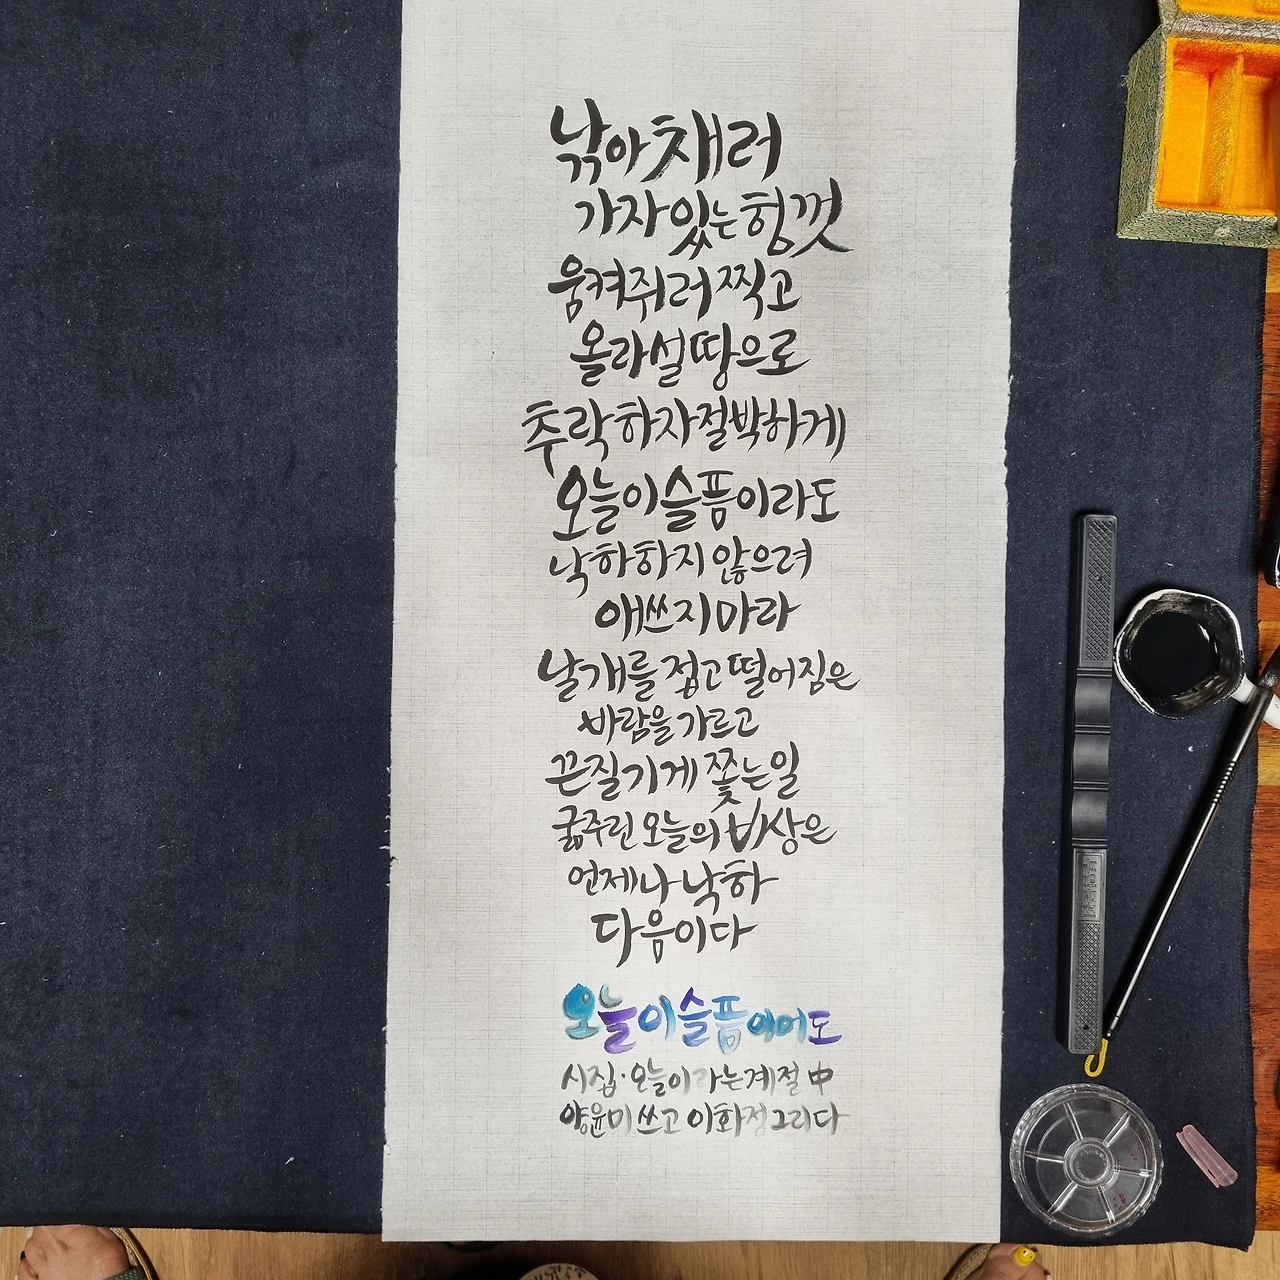 낚아채러
가자 있는 힘껏
움켜쥐러 찍고
올라설 땅으로
추락하자 절박하게
오늘이 슬픔이라도
낙하하지 않으려
애쓰지 마라
날개를 접고 떨어짐은
바람을 가르고
끈질기게 쫓는 일
굶주린 오늘의 비상은
언제나 낙하
다음이다
오늘이 슬픔이어도
시집·오늘이라는 계절 中
양윤미 쓰고 이화정 그리다